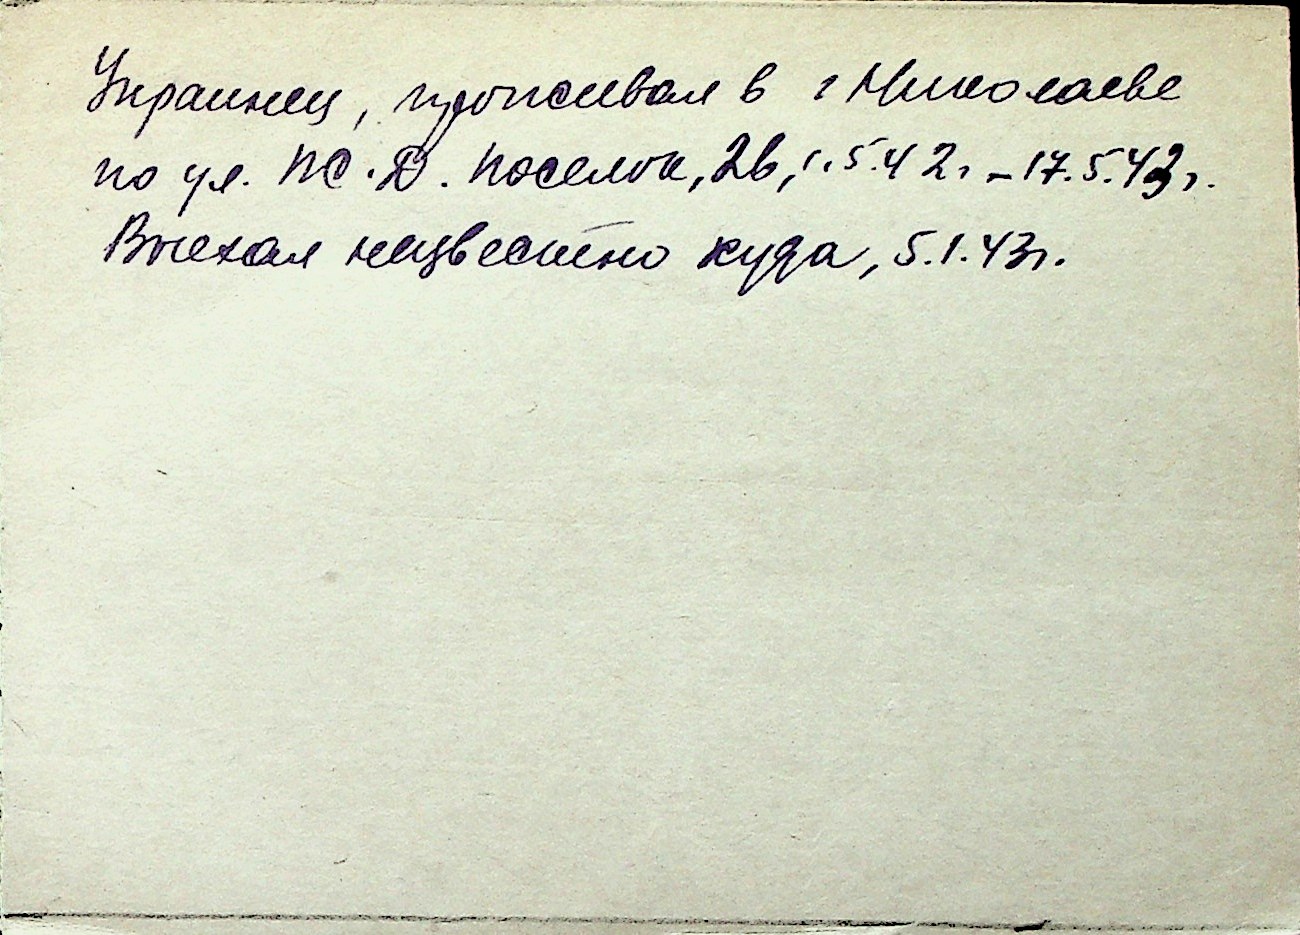 Украинец, проживал в г Николаеве
по ул. Ж.Д. поселок, 2в, 1.5.42г - 17.5.43г.
Выехал неизвестно куда, 5.1.43г.